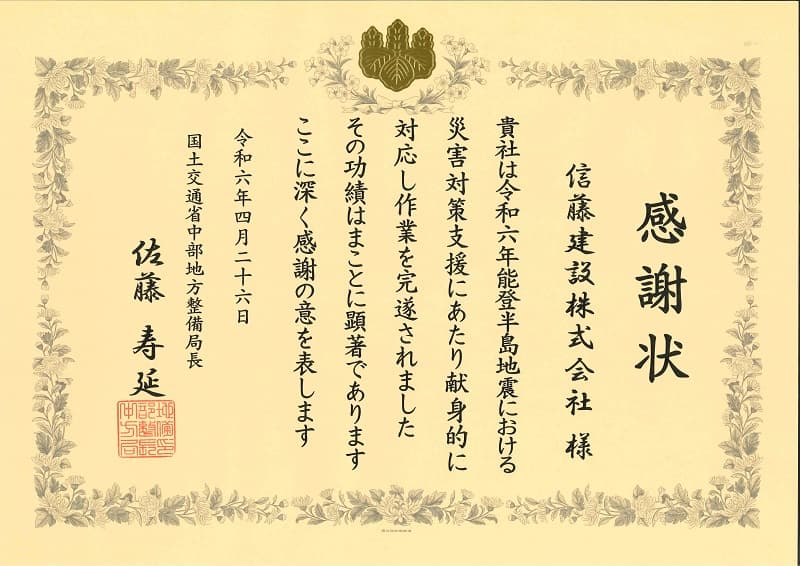 感謝状
信藤建設株式会社 様
貴社は令和六年能登半島地震における
災害対策支援にあたり献身的に
対応し作業を完遂されました
その功績はまことに顕著であります
ここに深く感謝の意を表します
令和六年四月二十六日
国土交通省中部地方整備局長
佐藤 寿延